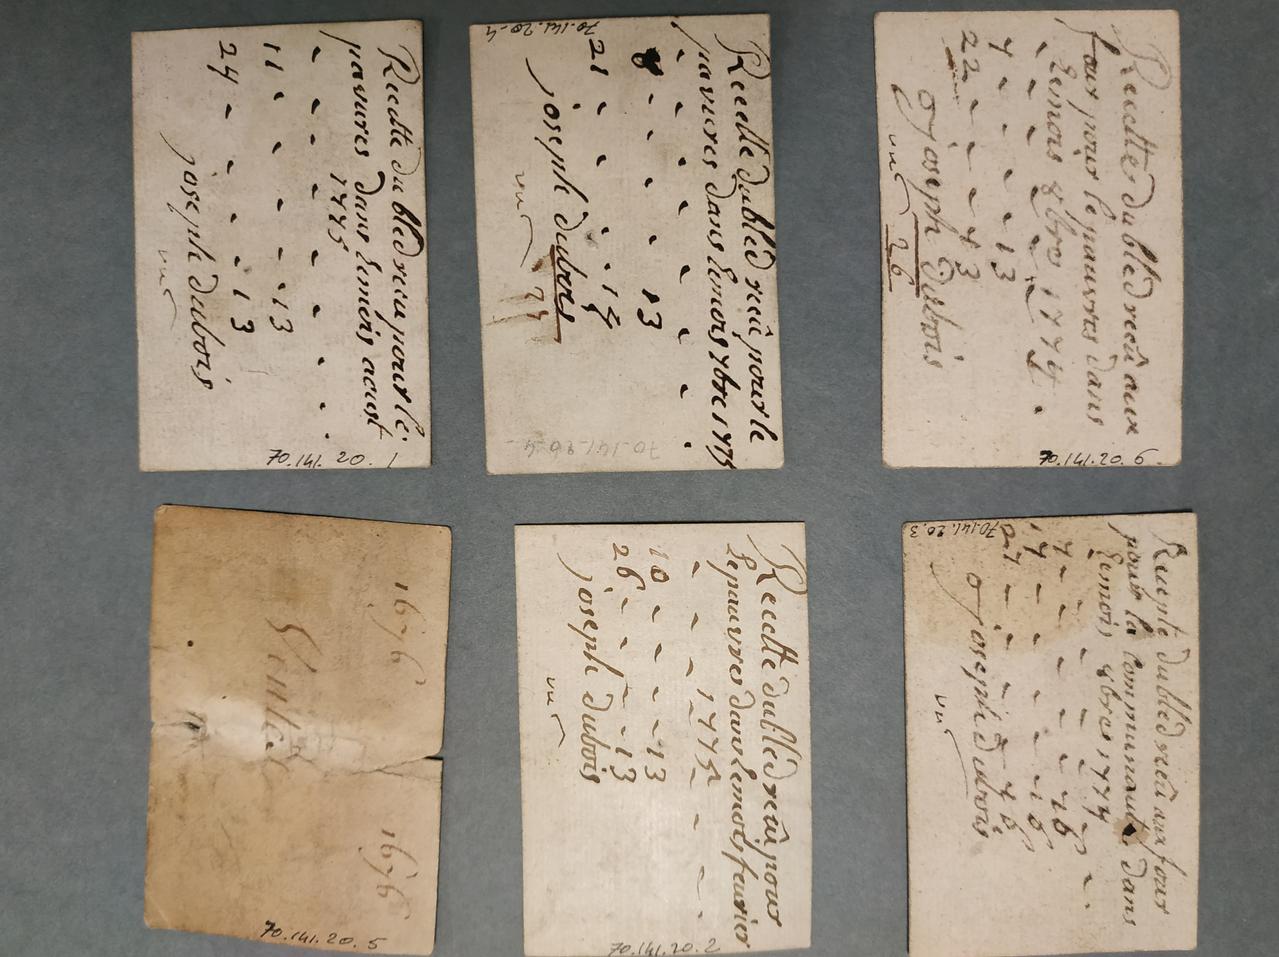 Recette du bled reçu pour le
pauvres dans lemois aoust
1775
11 - - - 13
24 - - - 13
joseph dubois
vu
70.141.20.1
70.141.20.4
Recette du bled reçû pour le
pauvres dans lemois 7bre 1775
8 - - - 13
21 - - - 14
joseph dubois
vu
70.141.20.4
Recettes du bled reçû aux
four pour le pauvres dans
lemois 8bre 1774
7 - - - 13
22 - - - 13
joseph dubois
vu 26
70.141.20.6
1676
1676
70.141.20.5
Recette du bled reçû pour
lepauvres dans lemois feurier
1775
10 - - - 13
26 - - - 13
joseph dubois
vu
70.141.20.2
70.141.20.3
Recette du bled reçû aux four
pour la communauté dans
lemois 8bre 1774
joseph dubois
vu